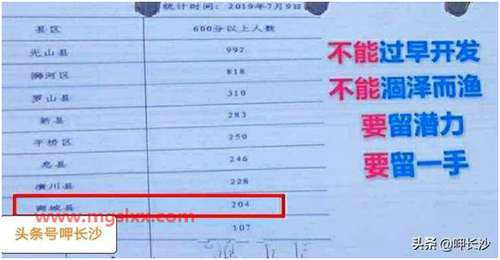 统计时间：2019年7月9日
县区 600分以上人数
光山县 992
浉河区 818
罗山县 310
新县 283
平桥区 250
息县 246
潢川县 228
商城县 204
107
不能过早开发
不能涸泽而渔
要留潜力
要留一手
www.mgslxx.com
头条号呷长沙
头条 @呷长沙